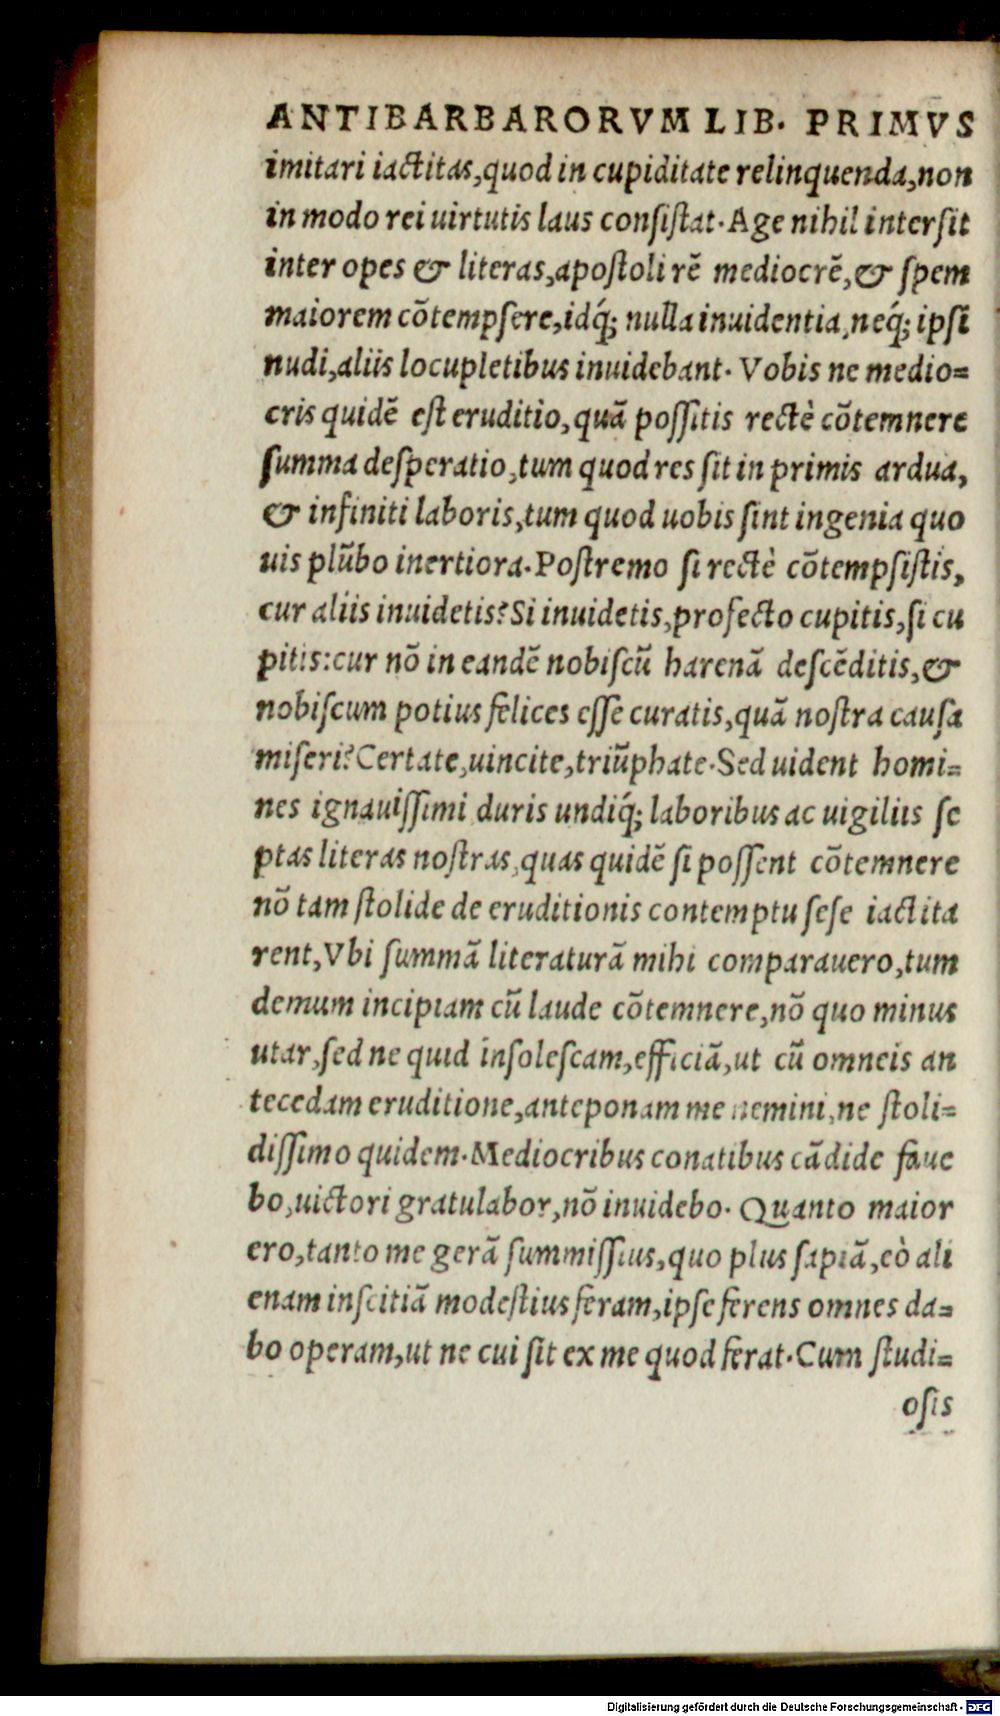 ANTIBARBARORVM LIB. PRIMVS
imitari iactitas,quod in cupiditate relinquenda,non
in modo rei uirtutis laus consistat. Age nihil intersit
inter opes & literas,apostoli rẽ mediocrẽ,& spem
maiorem cõtempsere,idq́; nulla inuidentia,neq́; ipsi
nudi,aliis locupletibus inuidebant. Vobis ne medio=
cris quidẽ est eruditio,quã possitis rectè cõtemnere
summa desperatio,tum quod res sit in primis ardua,
& infiniti laboris,tum quod uobis sint ingenia quo
uis plũbo inertiora.Postremo si rectè cõtempsistis,
cur aliis inuidetis?Si inuidetis,profecto cupitis,si cu
pitis:cur nõ in eandẽ nobiscũ harenã descẽditis,&
nobiscum potius felices esse curatis,quã nostra causa
miseri?Certate,uincite,triũphate.Sed uident homi=
nes ignauissimi duris undiq́; laboribus ac uigiliis se
ptas literas nostras,quas quidẽ si possent cõtemnere
nõ tam stolide de eruditionis contemptu sese iactita
rent,Vbi summã literaturã mihi comparauero,tum
demum incipiam cũ laude cõtemnere,nõ quo minus
utar,sed ne quid insolescam,efficiã,ut cũ omneis an
tecedam eruditione,anteponam me nemini,ne stoli=
dissimo quidem.Mediocribus conatibus cãdide faue
bo,uictori gratulabor,nõ inuidebo. Quanto maior
ero,tanto me gerã summissius,quo plus sapiã,eò ali
enam inscitiã modestius feram,ipse ferens omnes da=
bo operam,ut ne cui sit ex me quod ferat.Cum studi=
osis
Digitalisierung gefördert durch die Deutsche Forschungsgemeinschaft - DFG